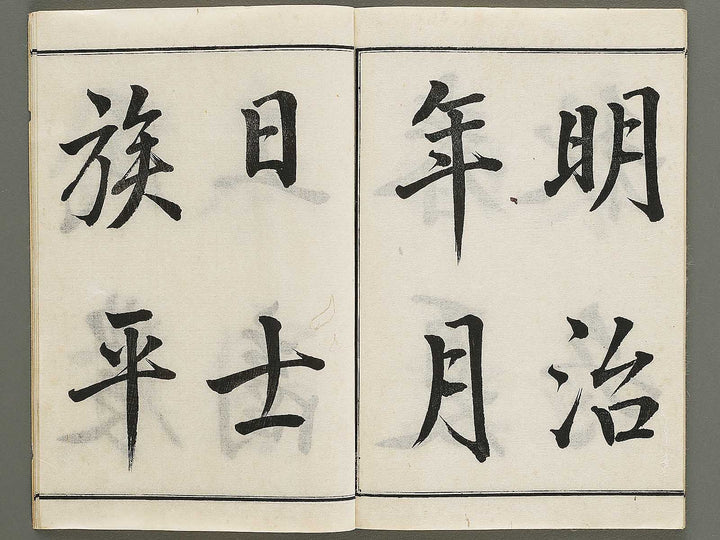 明治
年月
日士
族平